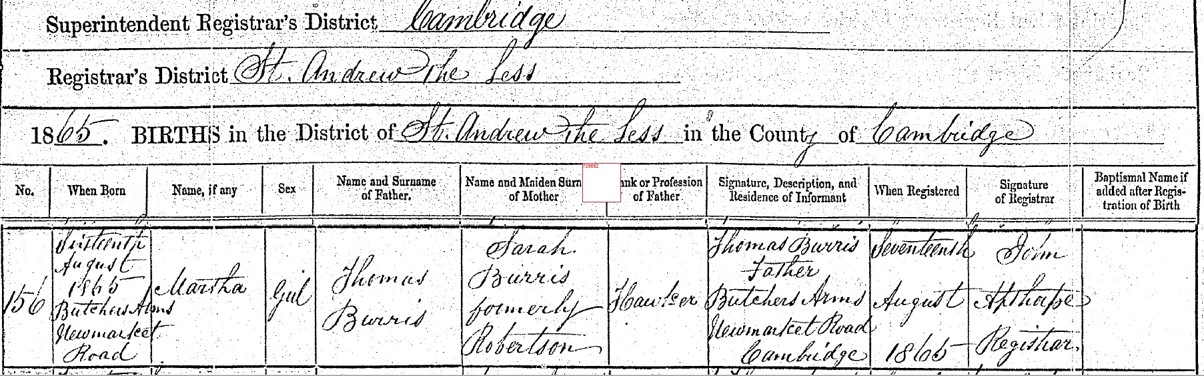 Superintendent Registrar's District Cambridge
Registrar's District St. Andrew the Less
1865. BIRTHS in the District of St. Andrew the Less in the County of Cambridge
No.
When Born
Name, if any
Sex
Name and Surname
of Father.
Name and Maiden Surn
of Mother
ank or Profession
of Father
Signature, Description, and
Residence of Informant
When Registered
Signature
of Registrar
Baptismal Name if
added after Regis-
tration of Birth
156
Sixteenth
August
1865
Butchers Arms
Newmarket
Road
Martha
Girl
Thomas
Burris
Sarah
Burris
formerly
Robertson
Hawker
Thomas Burris
Father
Butchers Arms
Newmarket Road
Cambridge
Seventeenth
August
1865
John
Apthape
Registrar.